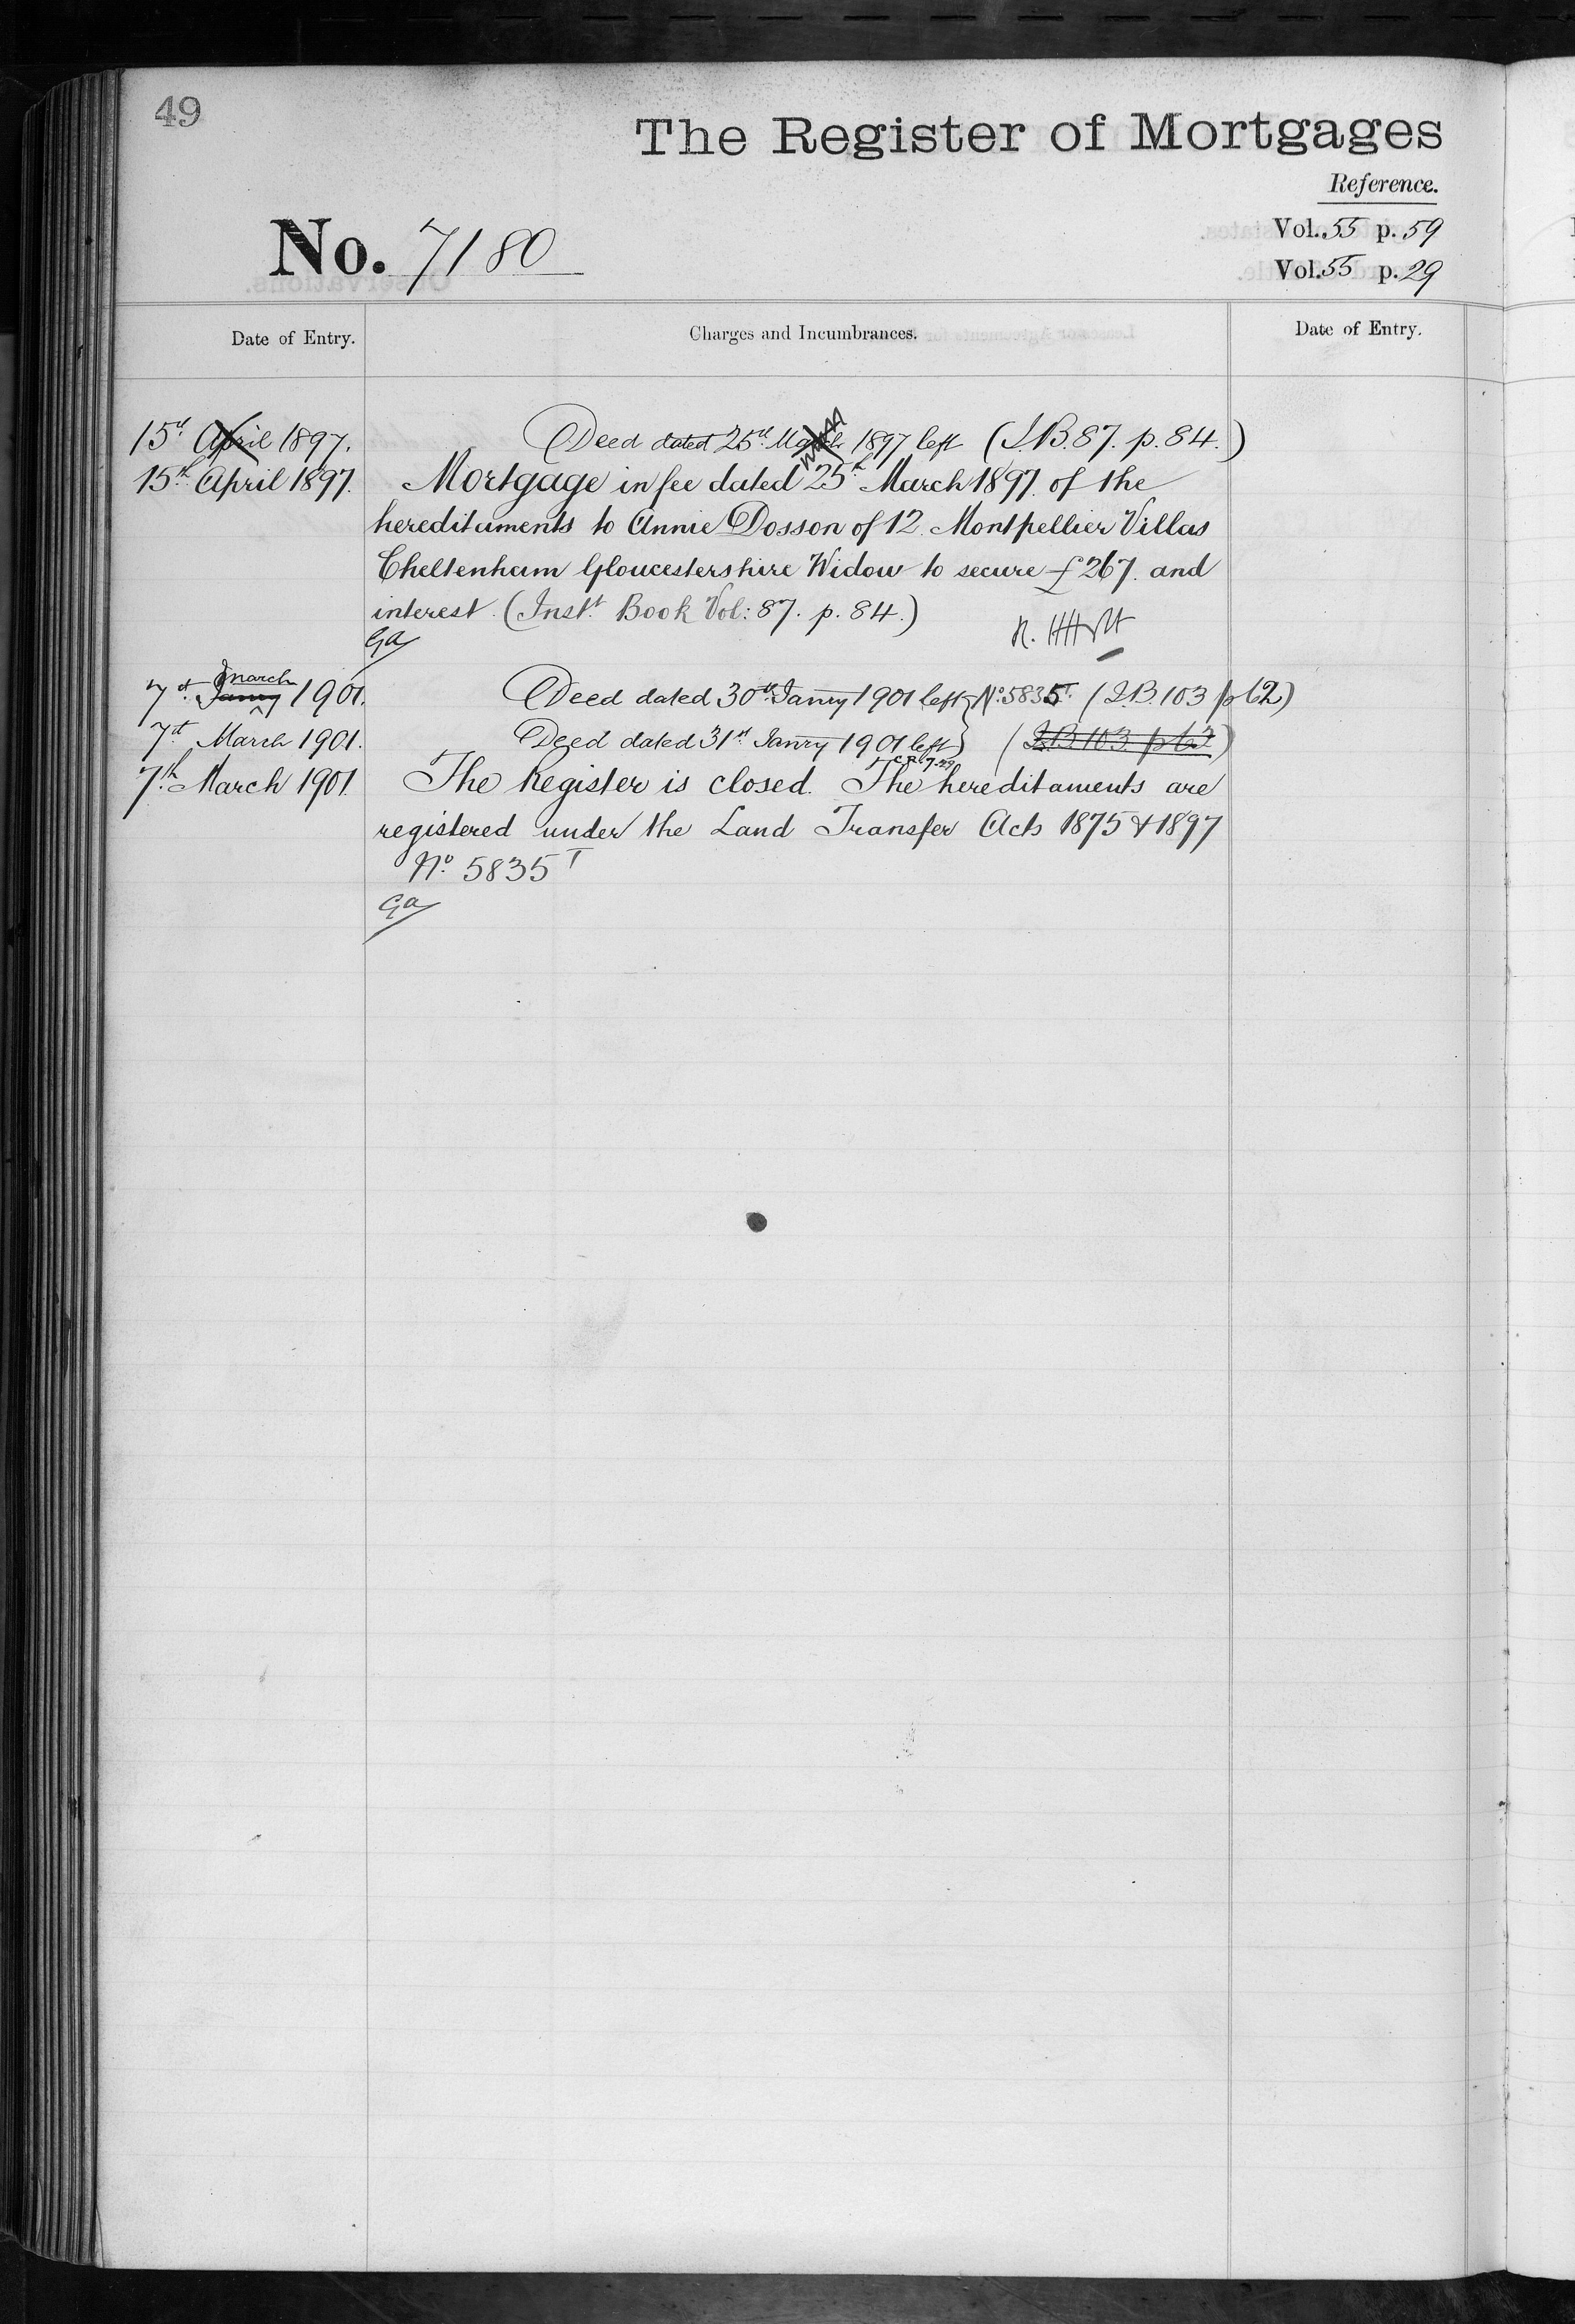 49
The Register of Mortgages
Reference.
No. 7180
Vol. 55 p. 59
Vol. 55 p. 29
Date of Entry. Charges and Incumbrances. Date of Entry.
15th April 1897. Deed dated 25th March 1897 left (I.B. 87. p. 84.)
15th April 1897. Mortgage in fee dated 25th March 1897 of the
hereditaments to Annie Dosson of 12 Montpellier Villas
Cheltenham Gloucestershire Widow to secure £267. and
interest. (Instt. Book Vol: 87. p. 84.)
Ga
march
7th Janry 1901. Deed dated 30th Janry 1901 left } No. 5835T. (I.B. 103 p 62)
7th March 1901. Deed dated 31st Janry 1901 left } (I.B 103 p 63)
7th March 1901. The Register is closed. The hereditaments are
registered under the Land Transfer Acts 1875 & 1897
No. 5835T
Ga